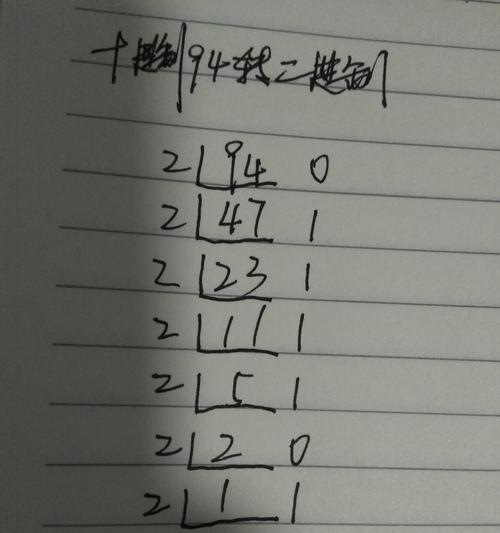 十进制94转二进制
2 94 0
2 47 1
2 23 1
2 11 1
2 5 1
2 2 0
2 1 1